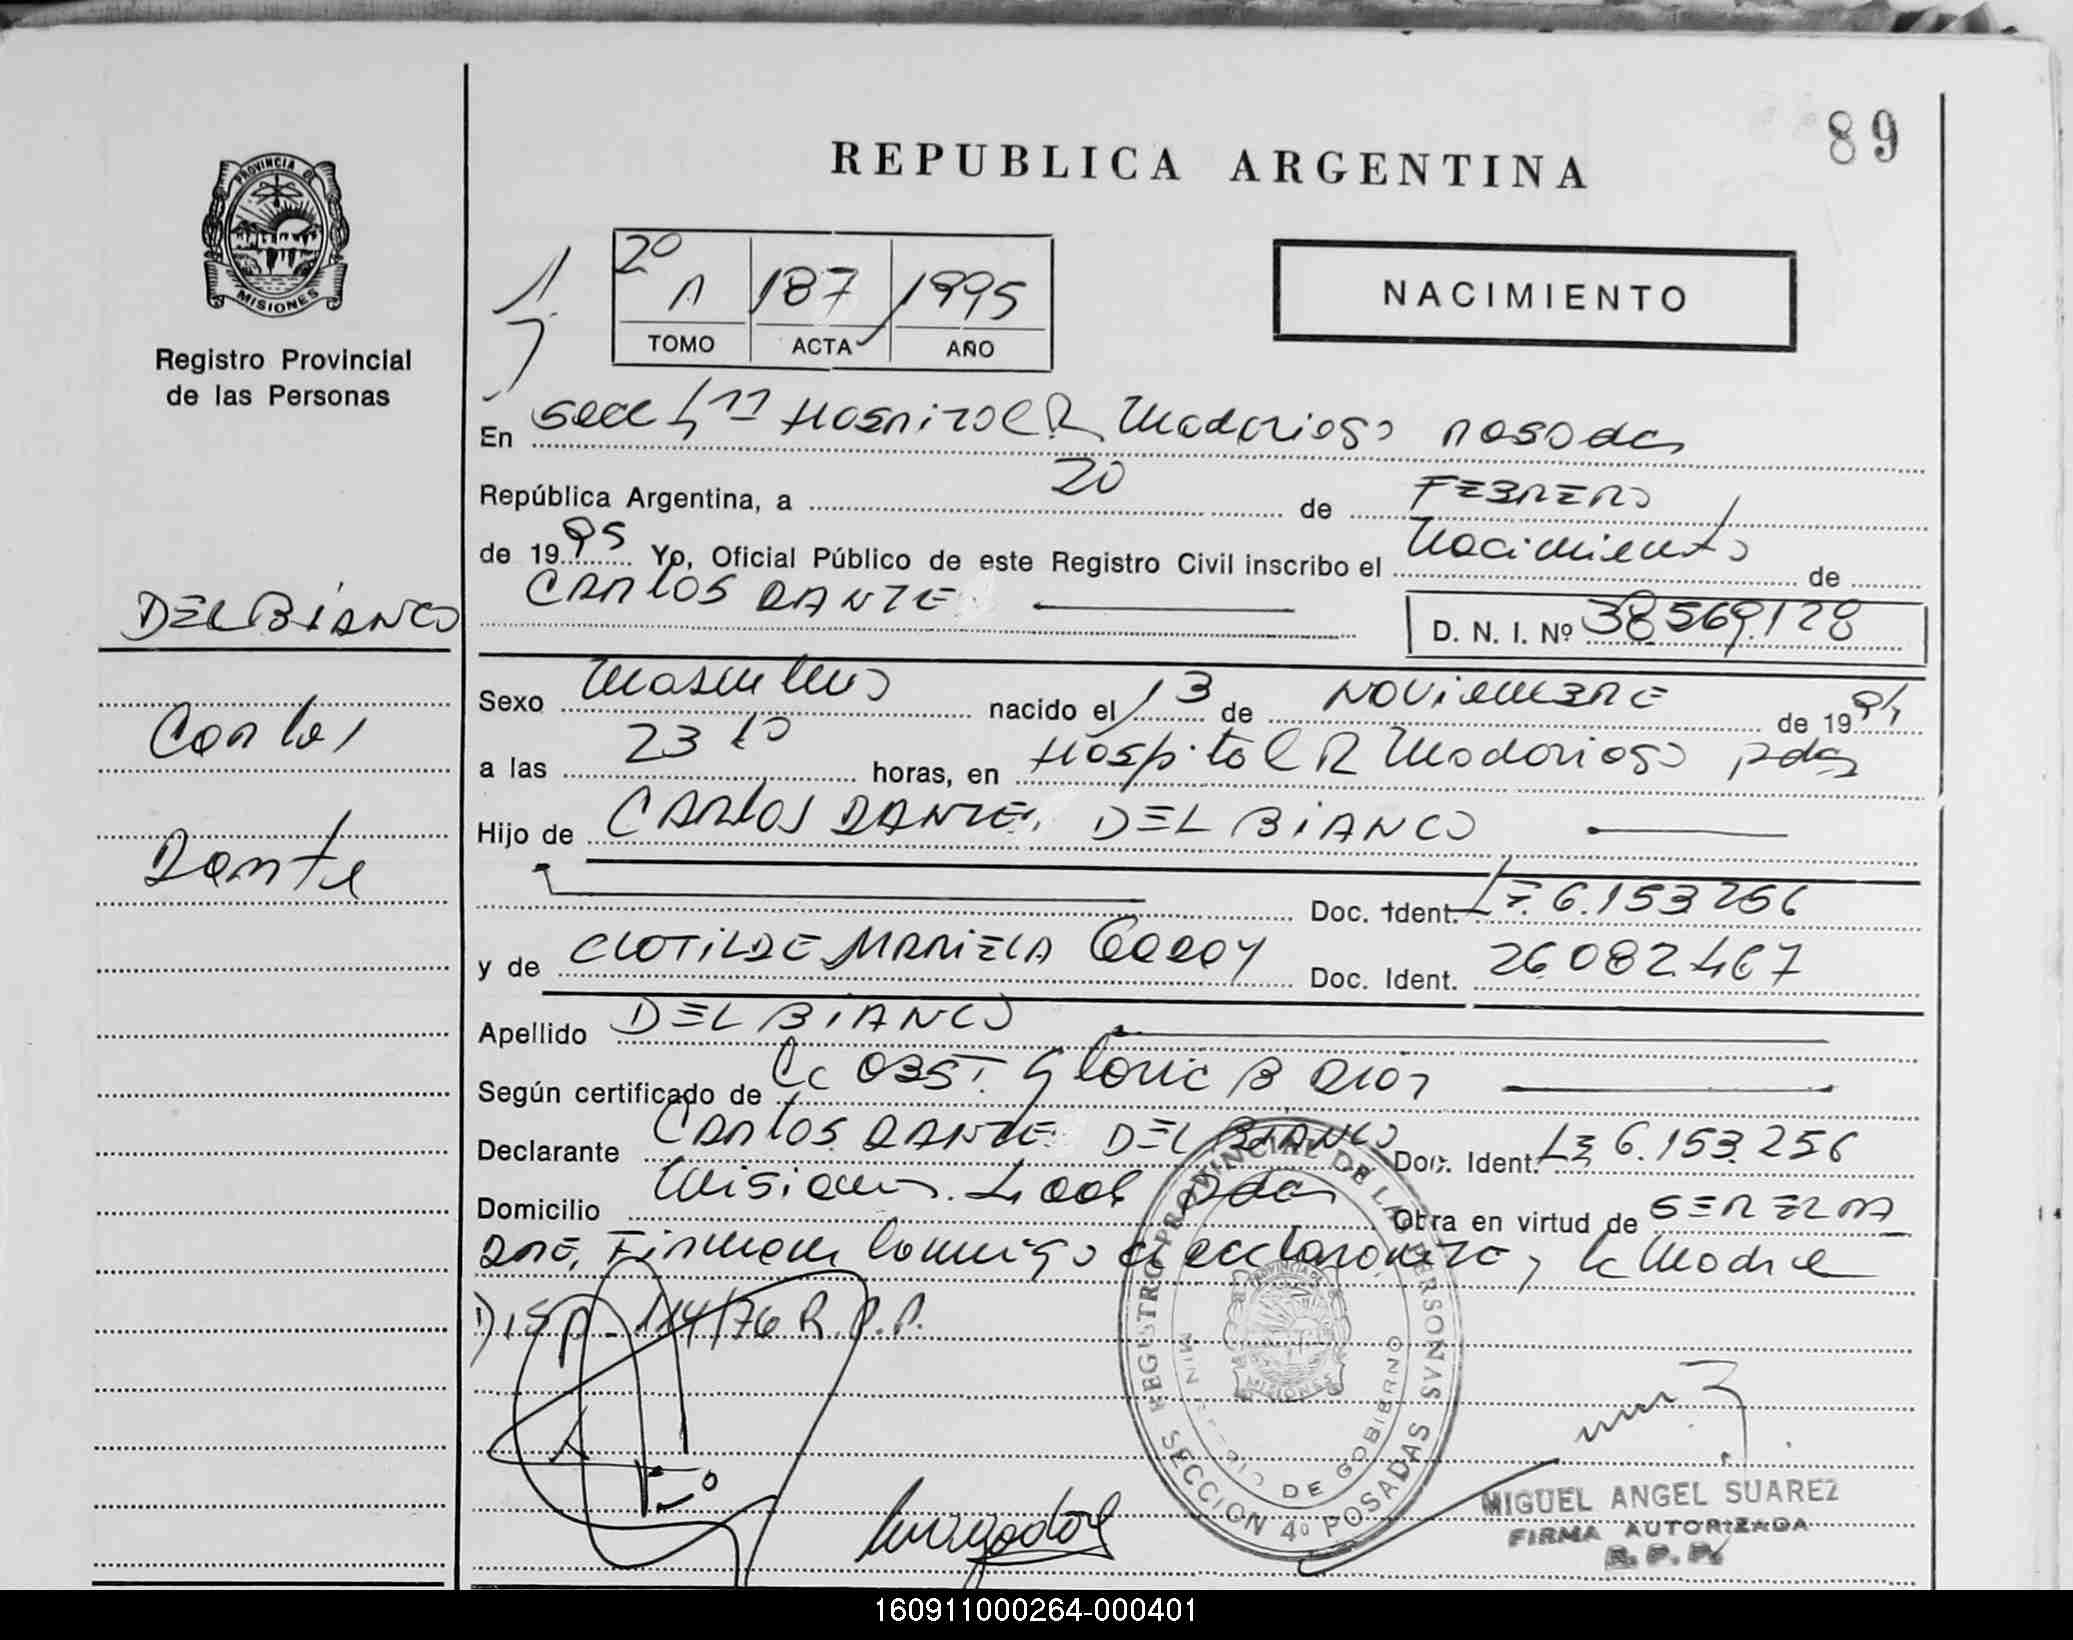 89
REPUBLICA ARGENTINA
PROVINCIA DE
MISIONES
Registro Provincial
de las Personas
2º
1 187 1995
TOMO ACTA AÑO
NACIMIENTO
En Secc 4ta Hospital R Madariaga Posadas
República Argentina, a 20 de FEBRERO
de 1995 Yo, Oficial Público de este Registro Civil inscribo el Nacimiento de
CARLOS DANTE
D. N. I. Nº 38569.128
DEL BIANCO
Carlos
Dante
Sexo Masculino nacido el 13 de NOVIEMBRE de 1994
a las 23 10 horas, en Hospital R Madariaga Pdas
Hijo de CARLOS DANTE DEL BIANCO
Doc. Ident. LE 6.153256
y de CLOTILDE MARIELA GODOY Doc. Ident. 26082467
Apellido DEL BIANCO
Según certificado de OBST. Gloria B
Declarante CARLOS DANTE DEL BIANCO Doc. Ident. LE 6.153.256
Domicilio Misiones Pdas Obra en virtud de SER EL PA
DRE, Firman conmigo el declarante y la Madre
Disp. 114/76 R.P.P.
REGISTRO PROVINCIAL DE LAS PERSONAS
MINISTERIO DE GOBIERNO
PROVINCIA DE
MISIONES
SECCION 4º POSADAS
MIGUEL ANGEL SUAREZ
FIRMA AUTORIZADA
R. P. P.
160911000264-000401